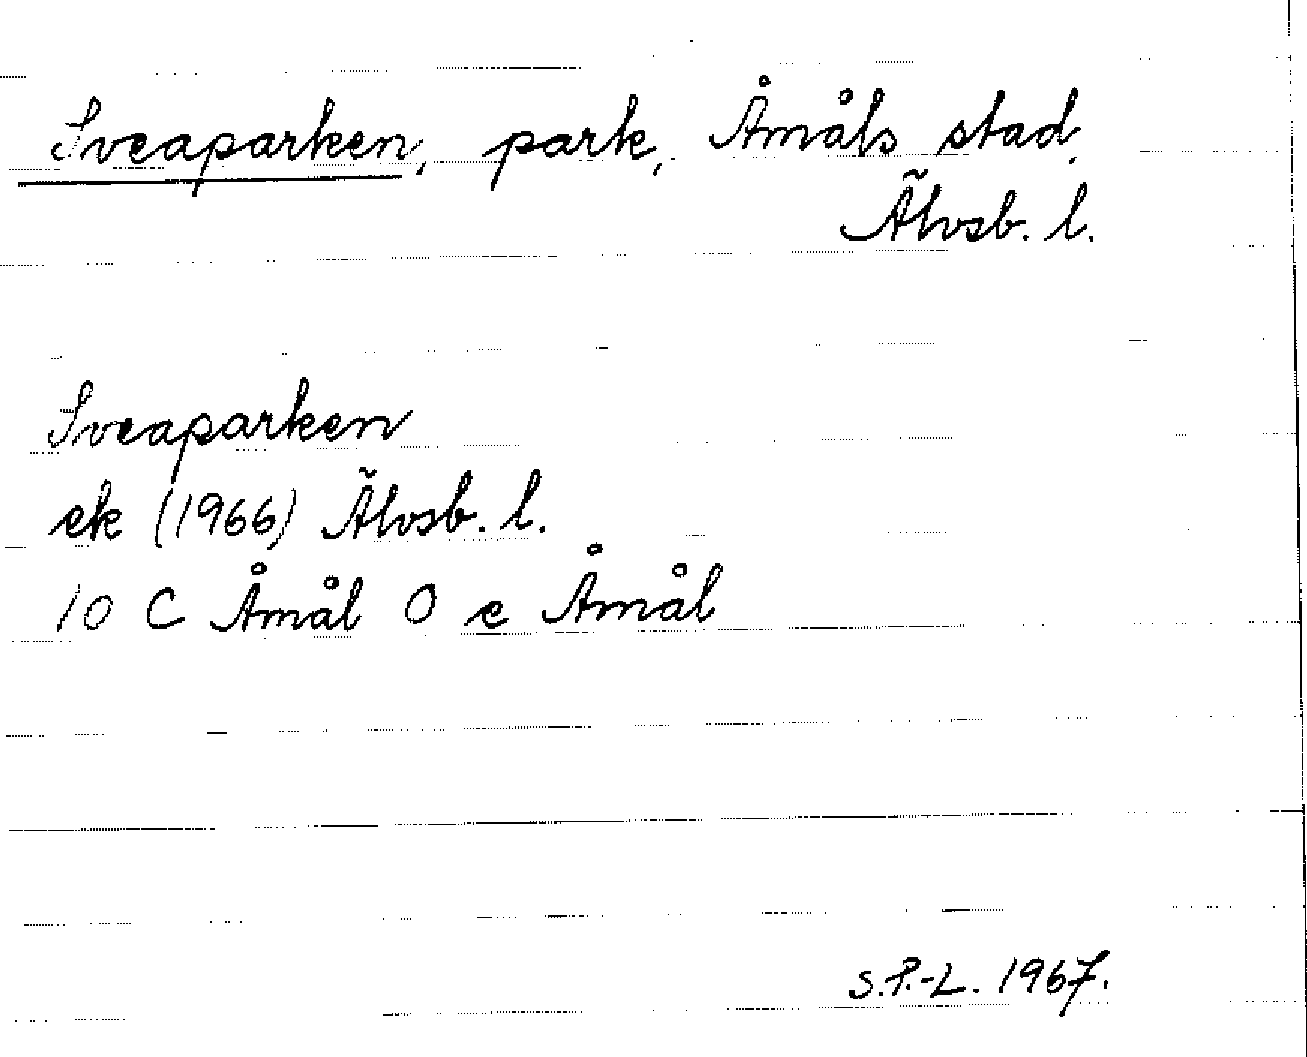 Sveaparken, park, Åmåls stad,
Älvsb. l.
Sveaparken
ek (1966) Älvsb. l.
10 C Åmål O e Åmål
S.P.-L. 1967.